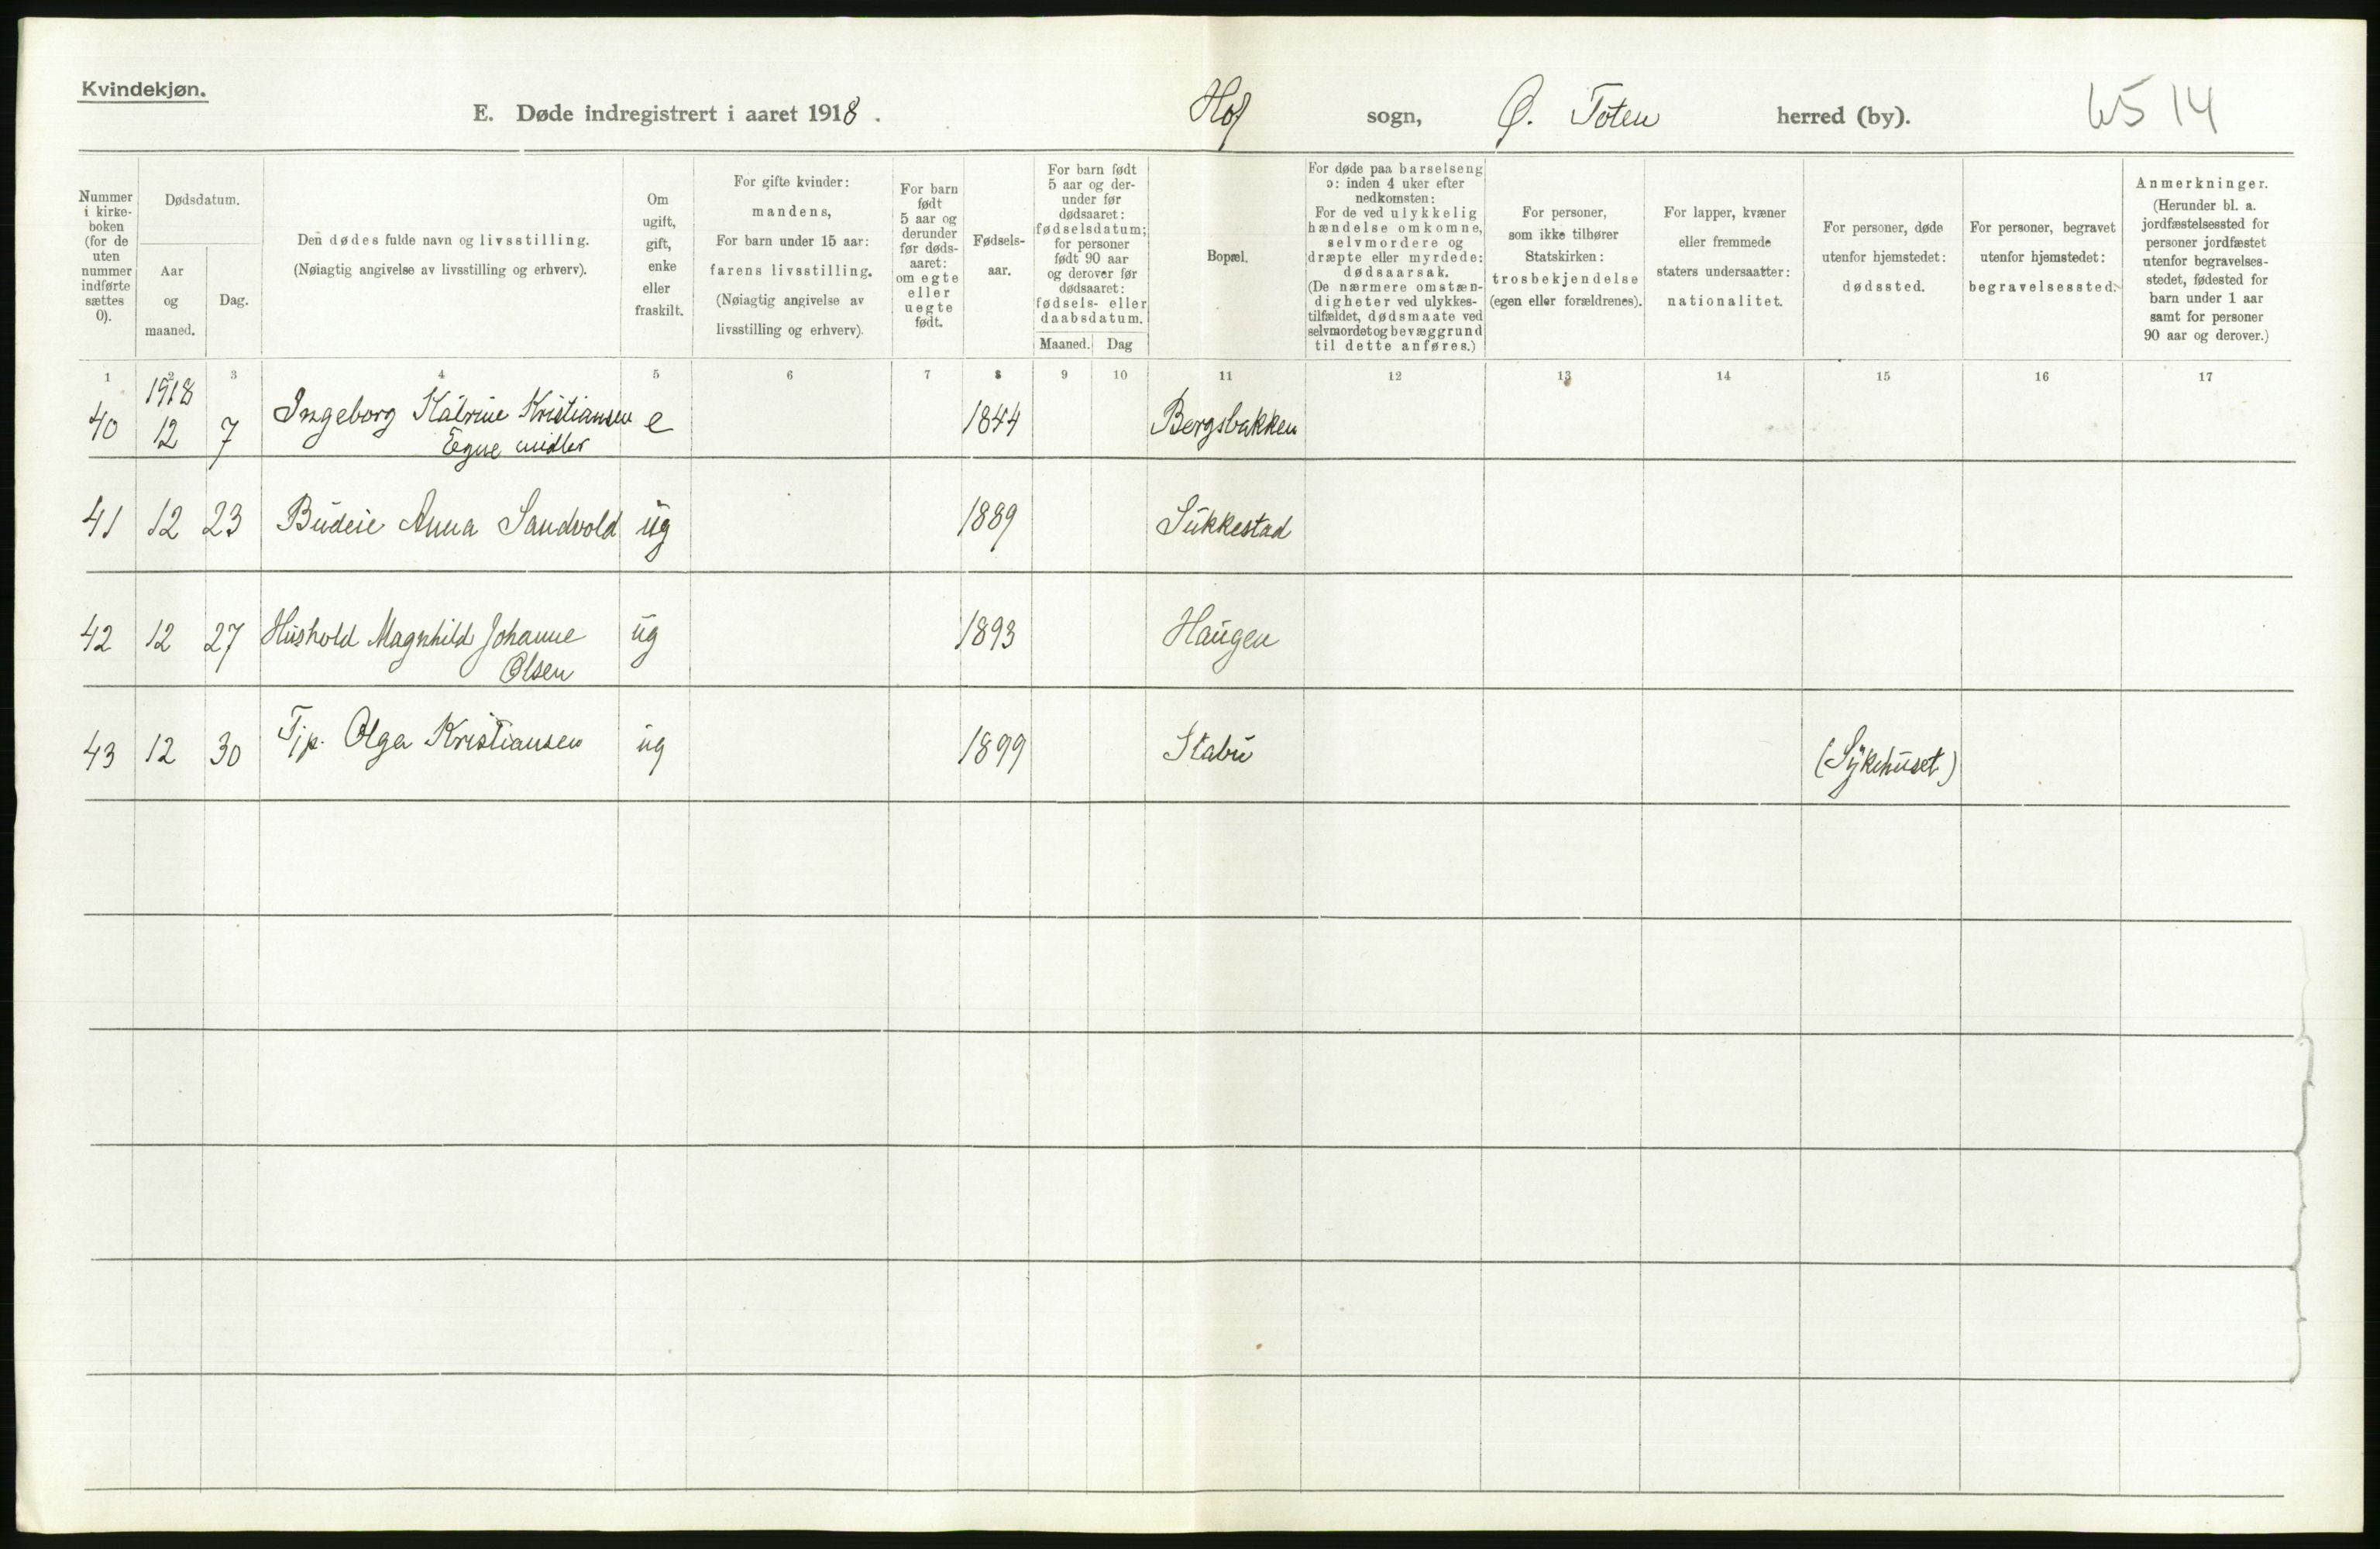 Kvindekjøn.
E. Døde indregistrert i aaret 1918. Hof sogn, Ø. Toten herred (by). 6514
Nummer i kirkeboken (for de uten nummer indførte sættes 0).
Dødsdatum.
Aar og maaned.
Dag.
Den dødes fulde navn og livsstilling.
(Nøiagtig angivelse av livsstilling og erhverv).
Om ugift, gift, enke eller fraskilt.
For gifte kvinder:
mandens,
For barn under 15 aar:
farens livsstilling.
(Nøiagtig angivelse av
livsstilling og erhverv).
For barn født 5 aar og derunder før dødsaaret: om egte eller uegte født.
Fødselsaar.
For barn født 5 aar og derunder før dødsaaret: fødselsdatum; for personer født 90 aar og derover før dødsaaret: fødsels- eller daabsdatum.
Maaned. Dag
Bopæl.
For døde paa barselseng
ɔ: inden 4 uker efter
nedkomsten:
For de ved ulykkelig
hændelse omkomne,
selvmordere og
dræpte eller myrdede:
dødsaarsak.
(De nærmere omstæn-
digheter ved ulykkes-
tilfældet, dødsmaate ved
selvmordet og bevæggrund
til dette anføres.)
For personer,
som ikke tilhører
Statskirken:
trosbekjendelse
(egen eller forældrenes).
For lapper, kvæner
eller fremmede
staters undersaatter:
nationalitet.
For personer, døde
utenfor hjemstedet:
dødssted.
For personer, begravet
utenfor hjemstedet:
begravelsessted.
Anmerkninger.
(Herunder bl. a.
jordfæstelsessted for
personer jordfæstet
utenfor begravelses-
stedet, fødested for
barn under 1 aar
samt for personer
90 aar og derover.)
1 2 3 4 5 6 7 8 9 10 11 12 13 14 15 16 17
1918
40 12 7 Ingeborg Katrine Kristiansen e 1844 Bergsbakken
Egne midler
41 12 23 Budeie Anna Sandvold ug 1889 Sukkestad
42 12 27 Hushold Magnhild Johanne ug 1893 Haugen
Olsen
43 12 30 Tjp. Olga Kristiansen ug 1899 Stabu (Sykehuset)